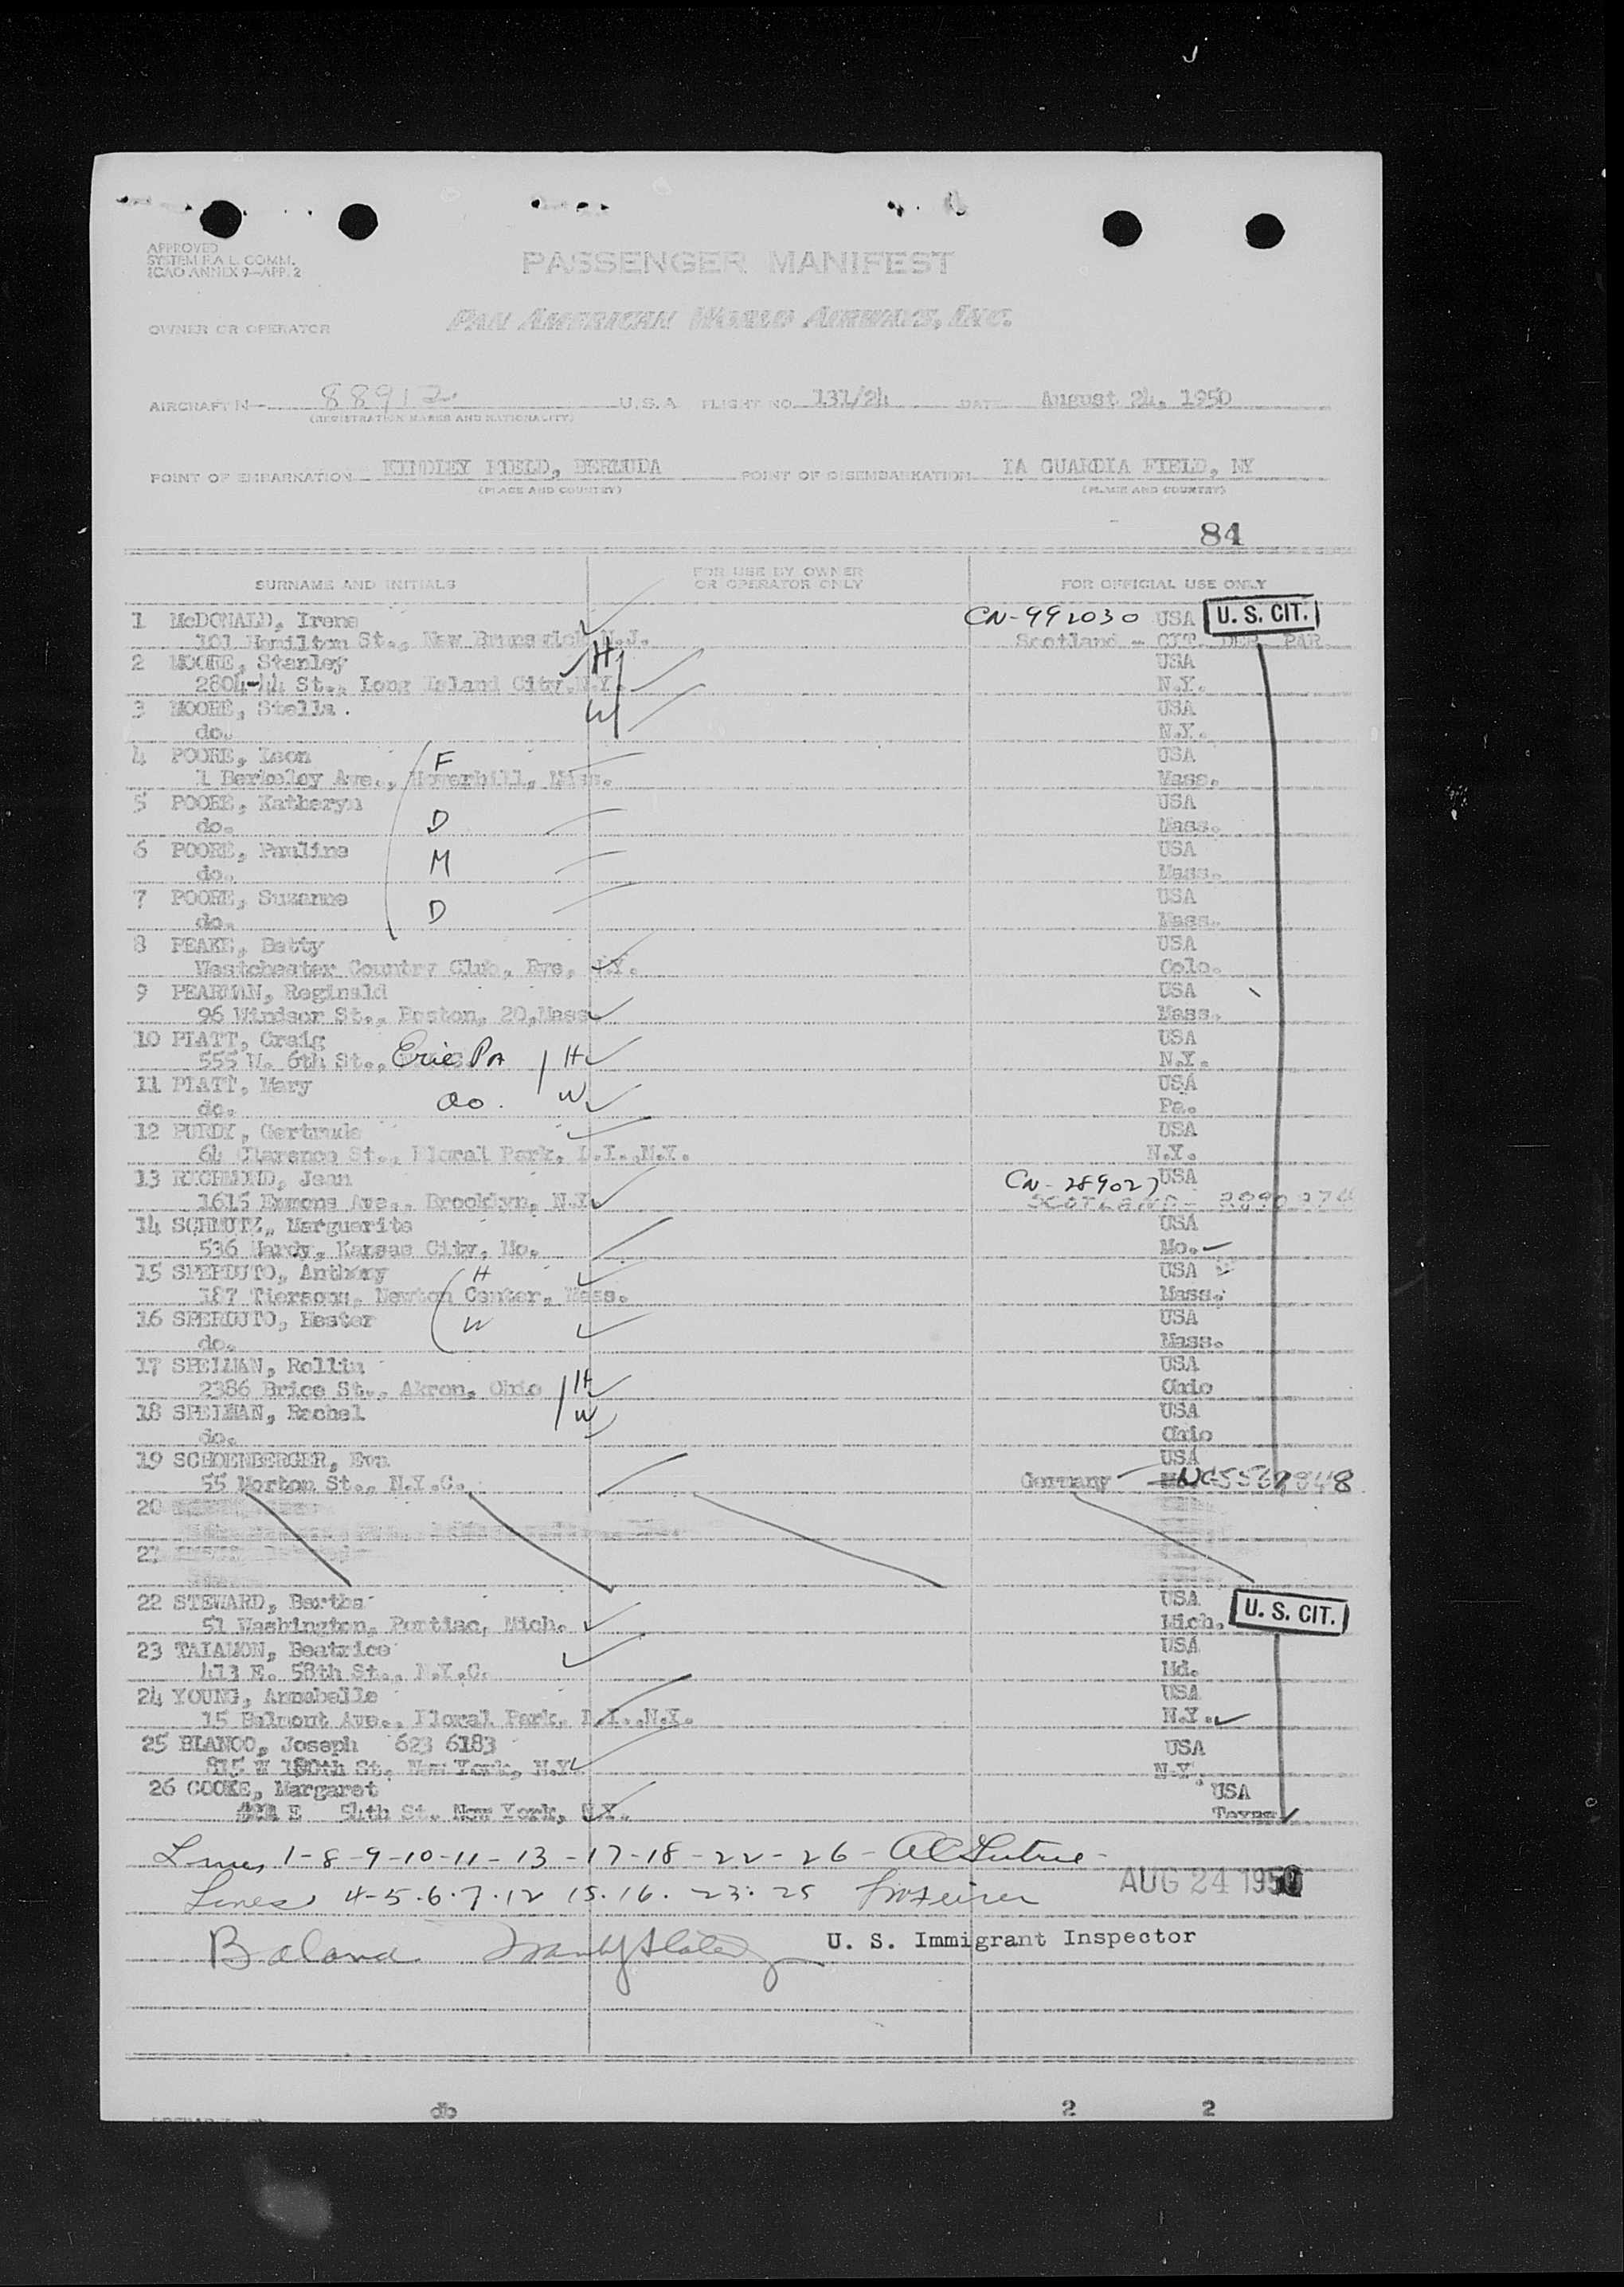 APPROVED
SYSTEM F.A.L. COMM.
ICAO ANNEX 9—APP. 2
PASSENGER MANIFEST
OWNER OR OPERATOR PAN AMERICAN WORLD AIRWAYS, INC.
AIRCRAFT N— 88912 U.S.A. FLIGHT NO. 131/24 DATE August 24, 1950
(REGISTRATION MARKS AND NATIONALITY)
POINT OF EMBARKATION KINDLEY FIELD, BERMUDA POINT OF DISEMBARKATION LA GUARDIA FIELD, NY
(PLACE AND COUNTRY) (PLACE AND COUNTRY)
84
SURNAME AND INITIALS FOR USE BY OWNER OR OPERATOR ONLY FOR OFFICIAL USE ONLY
1 McDONALD, Irene CN-992030 USA U. S. CIT.
101 Hamilton St., New Brunswick N.J. Scotland - CIT. DER. PAR.
2 MOORE, Stanley H USA
2804-44 St., Long Island City, N.Y. N.Y.
3 MOORE, Stella W USA
do. N.Y.
4 POORE, Leon F USA
1 Berkeley Ave., Haverhill, Mass. Mass.
5 POORE, Katheryn USA
do. D Mass.
6 POORE, Pauline M USA
do. Mass.
7 POORE, Suzanne D USA
do. Mass.
8 PEAKE, Betty USA
Westchester Country Club, Rye, N.Y. Colo.
9 PEARMAN, Reginald USA
96 Windsor St., Boston, 20, Mass. Mass.
10 PIATT, Craig USA
555 W. 6th St., Erie Pa H N.Y.
11 PIATT, Mary W USA
do. do. Pa.
12 PURDY, Gertrude USA
64 Clarence St., Floral Park, L.I., N.Y. N.Y.
13 RICHMOND, Jean CN-289027 USA
1615 Emmons Ave., Brooklyn, N.Y. SCOTLAND-
14 SCHMUTZ, Marguerite USA
536 Hardy, Kansas City, Mo. Mo.
15 SPERDUTO, Anthony H USA
187 Newton Center, Mass. Mass.
16 SPERDUTO, Hester W USA
do. Mass.
17 SPELMAN, Rollin USA
2386 Brice St., Akron, Ohio H Ohio
18 SPELMAN, Rachel W USA
do. Ohio
19 SCHOENBERGER, Eva USA
55 Morton St., N.Y.C. Germany
20
21
22 STEWARD, Bertha USA U. S. CIT.
51 Washington, Pontiac, Mich. Mich.
23 TAIAMON, Beatrice USA
413 E. 58th St., N.Y.C. Md.
24 YOUNG, Annabelle USA
15 Belmont Ave., Floral Park, L.I., N.Y. N.Y.
25 BIANCO, Joseph 623 6183 USA
815 W 180th St. New York, N.Y. N.Y.
26 COOKE, Margaret USA
E 54th St. New York, N.Y. Texas
Lines 1-8-9-10-11-13-17-18-22-26-
Lines 4-5.6.7.12 15.16. 23. 25 AUG 24 1950
Balance U. S. Immigrant Inspector
db 2 2